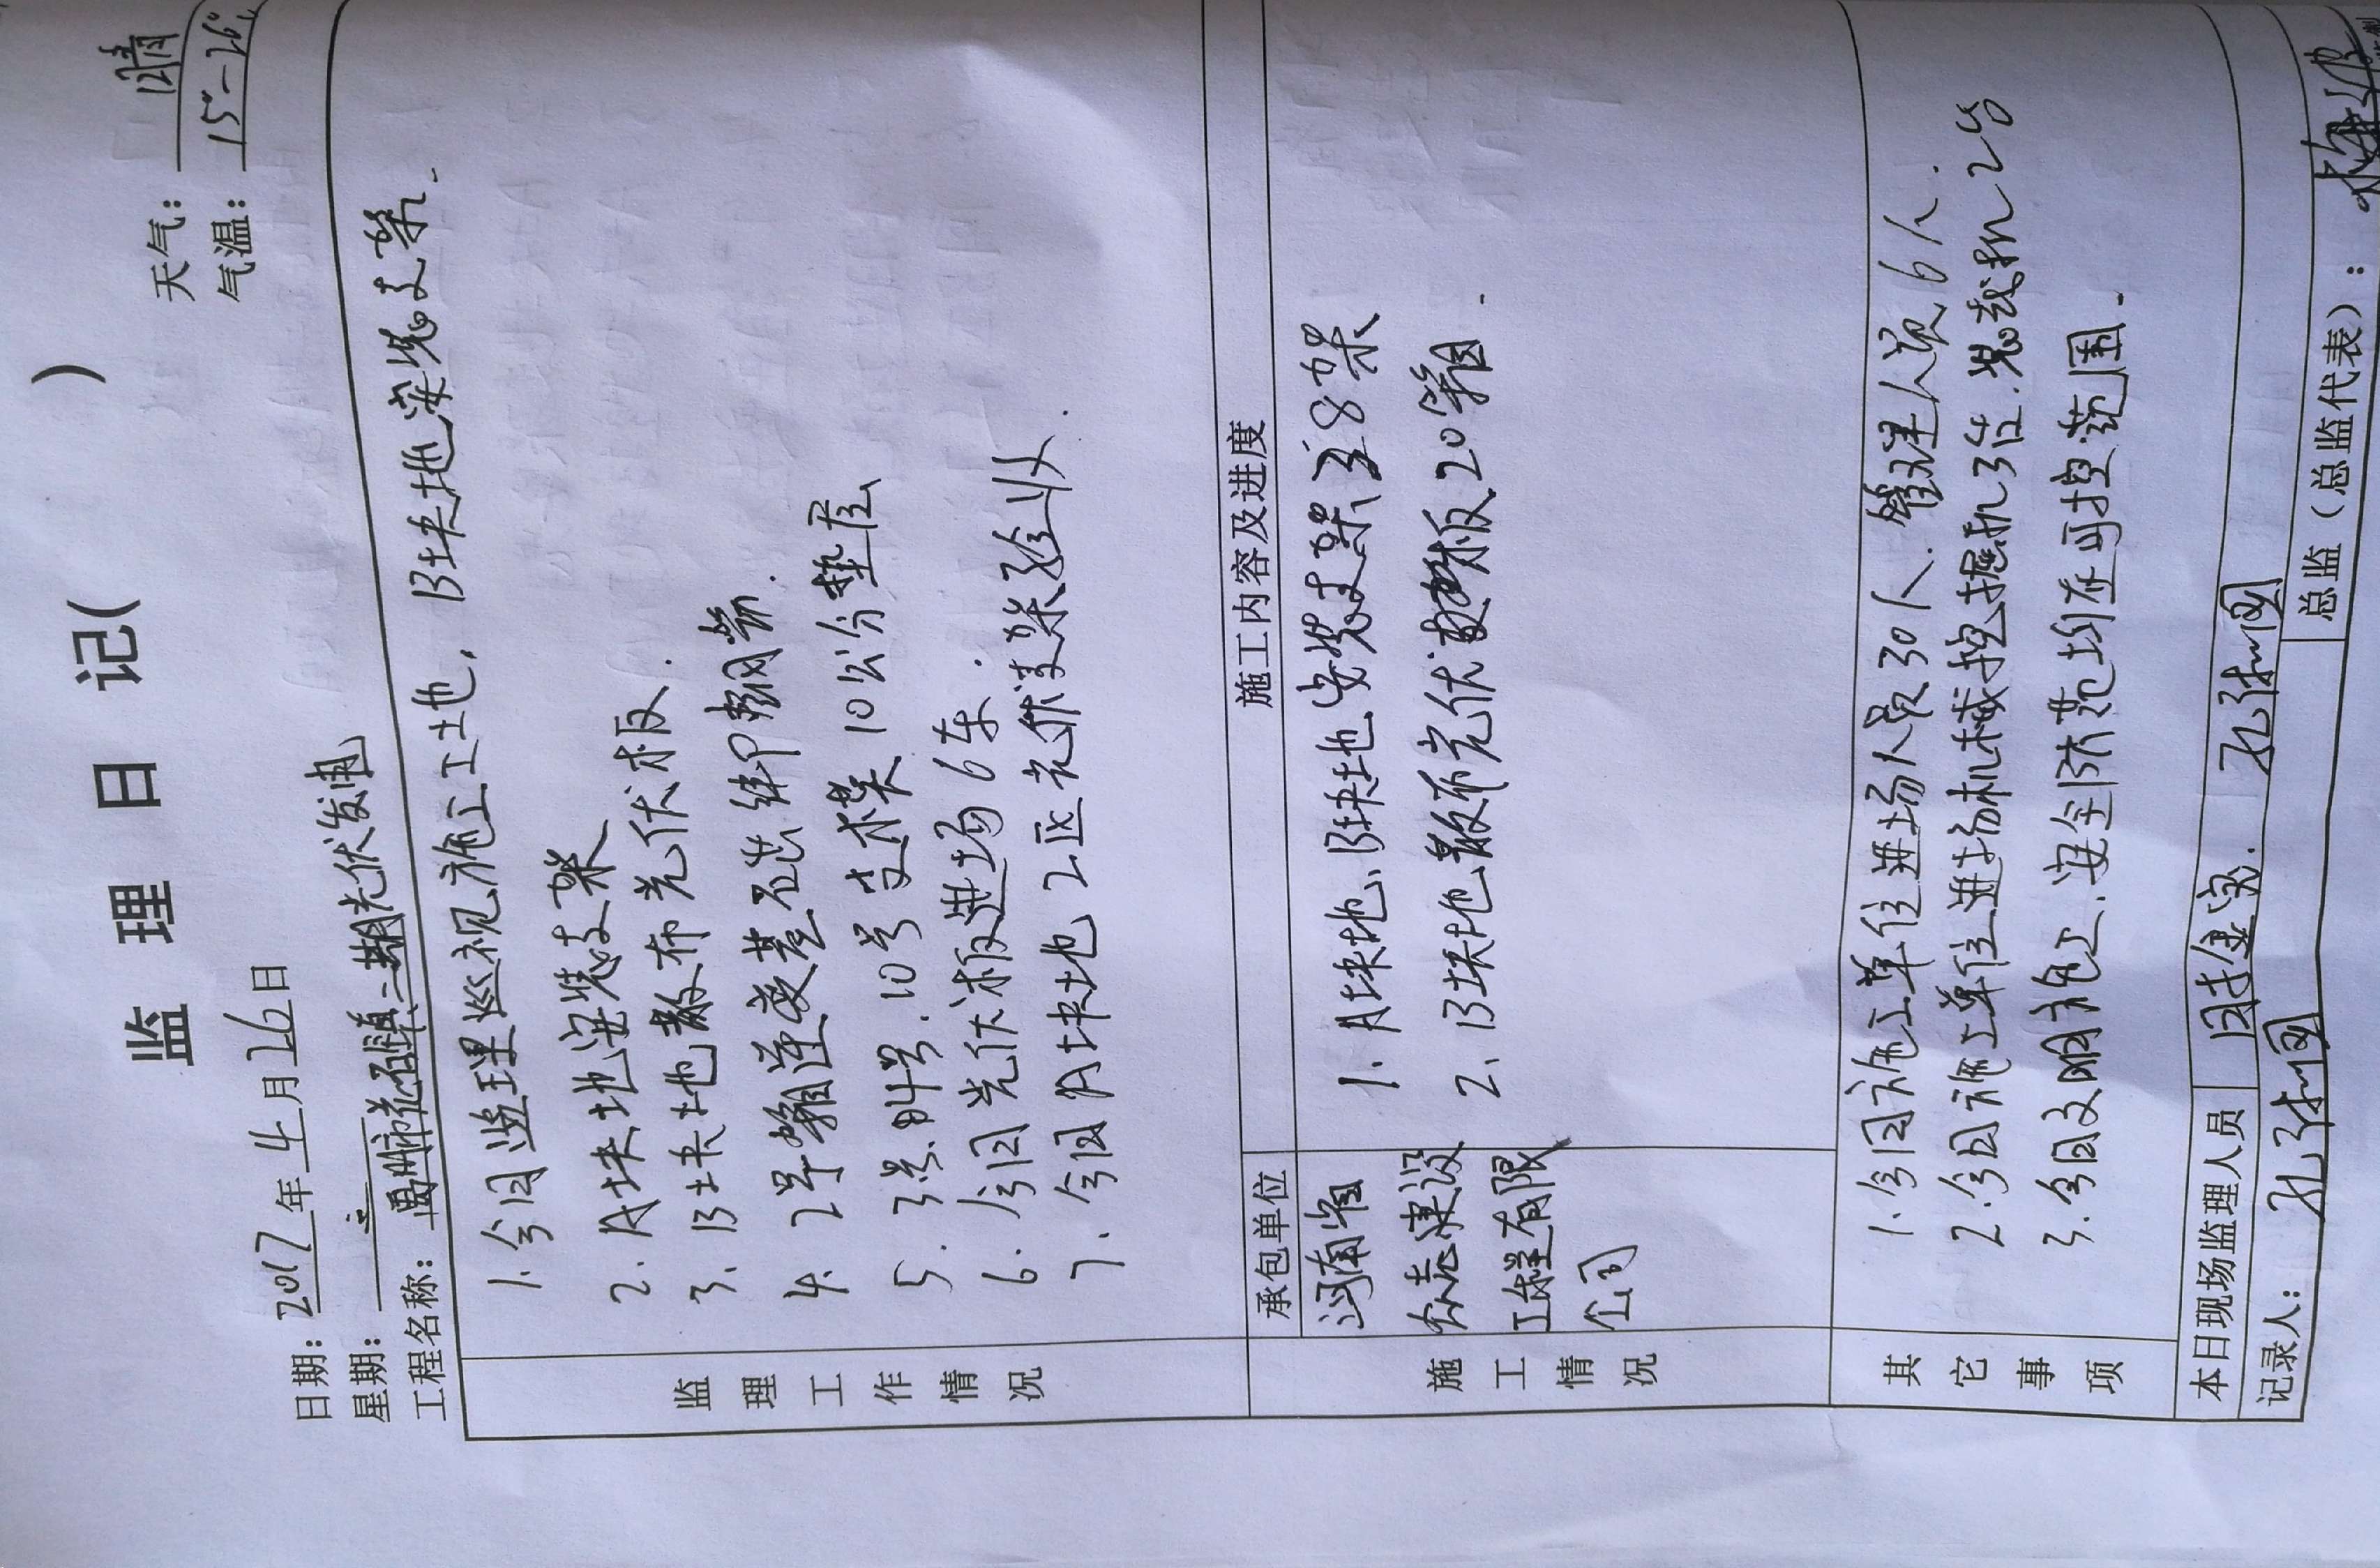 监 理 日 记( )
日期：2017年4月26日 天气：晴
星期：三 气温：15°-26°
工程名称：禹州市花石镇二期光伏发电
监理工作情况
1.今日监理巡视施工工地，B块地安装支架.
2.A块地安装支架
3、B块地散布光伏板.
4.2号箱逆变基础绑扎钢筋.
5.3号.4号.10号支木模10公分垫层
6.今日光伏板进场6车.
7.今日A块地2区光伏支架验收.
施工情况
承包单位 施工内容及进度
河南省
众志建设
工程有限
公司
1.A块地、B块地安装支架38架
2.B块地散布光伏板20箱.
其它事项
1.今日施工单位进场人员30人.管理人员6人.
2.今日施工单位进场机械挖掘机3台.装载机2台
3.今日文明施工、安全防范均在可控范围.
本日现场监理人员 孔祥国
记录人：孔祥国 总监（总监代表）：